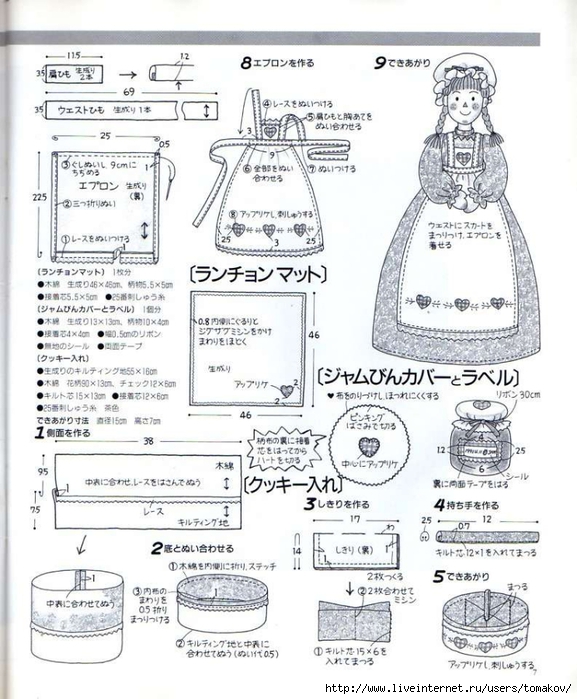 11.5
1.2
3.5
肩ひも 生成り 2本
69
3.5
ウェストひも 生成り1本
25
0.5
③ぐしぬいし 9cmに
ちぢめる
1
エプロン 生成り
(裏)
22.5
②三つ折りぬい
①レースをぬいつける
1
8 エプロンを作る
④レースをぬいつける
⑤肩ひもと胸あてを
ぬい合わせる
3
9
⑥全部をぬい
合わせる
⑦ぬいつける
⑧アップリケし、刺しゅうする
2.5
3
2.5
9 できあがり
ウエストにスカートを
まつりつけ、エプロンを
着せる
(ランチョンマット) 1枚分
●木綿 生成り46×46cm、柄物5.5×5cm
●接着芯5.5×5cm ●25番刺しゅう糸
(ジャムびんカバーとラベル) 1個分
●木綿 生成り13×13cm、柄物10×4cm
●接着芯4×4cm ●幅0.5cmのリボン
●無地のシール ●両面テープ
(クッキー入れ)
●生成りのキルティング地55×16cm
●木綿 花柄90×13cm、チェック12×6cm
●キルト芯15×13cm ●接着芯12×6cm
●25番刺しゅう糸 茶色
できあがり寸法 直径15cm 高さ7cm
〔ランチョン マット〕
0.8円便にぐるりと
ジグザグミシンをかけ
まわりをほどく
生成り
アップリケ
2
2
46
46
〔ジャムびんカバーとラベル〕
♥布をのりづけし、ほつれにくくする
ピンキング
ばさみで切る
中心にアップリケ
柄布の裏に接着
芯をはってから
ハートを切る
リボン30cm
4
12
2.5
6
シール
裏に両面テープをはる
〔クッキー入れ〕
1 側面を作る
38
9.5
木綿
中表に合わせ、レースをはさんでぬう
1
レース
7.5
キルティング地
1
中表に合わせてぬう
2 底とぬい合わせる
①木綿を内側に折り、ステッチ
③内布の
まわりを
0.5折り
まつりつける
②キルティング地と中表に
合わせてぬう(ぬい代0.5)
3 しきりを作る
17
わ
14
1
しきり(裏)
1
2枚つくる
②2枚合わせて
ミシン
①キルト芯15×6を
入れてまつる
4 持ち手を作る
2.5
0.7
12
キルト芯12×1を入れてまつる
5 できあがり
まつる
アップリケし、刺しゅうする
7
http://www.liveinternet.ru/users/tomakov/